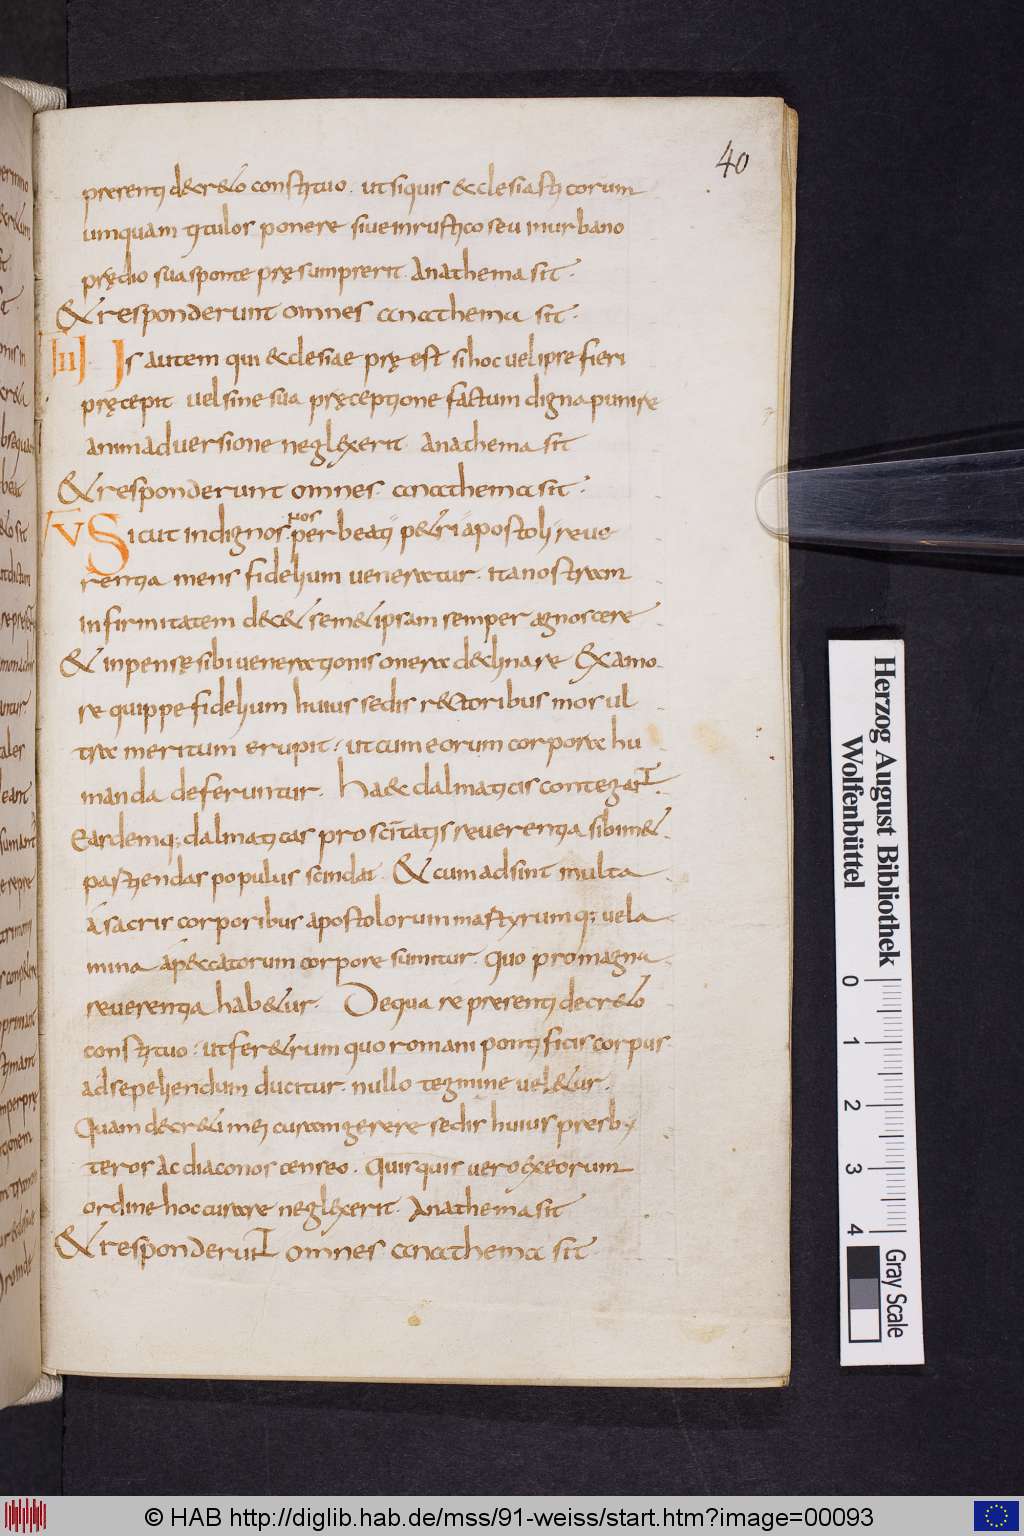 40
presenti decreto constituo. ut si quis ecclesiasticorum
umquam titulos ponere siue in rustico seu in urbano
prędio sua sponte pręsumpserit. Anathema sit.
Et responderunt omnes anathema sit.
IIII. Is autem qui ecclesiae pręest si hoc uel ipse fieri
pręcepit uel sine sua pręceptione factum digna punire
animaduersione neglexerit. anathema sit
Et responderunt omnes. anathema sit.
V Sicut indignos nos per beati petri apostoli reue
rentia mens fidelium ueneratur. ita nostram
infirmitatem decet semetipsam semper agnoscere
Et inpensę sibi uenerationis onera declinare Ex amo
re quippe fidelium huius sedis rectoribus mos ul
tra meritum erupit. ut cum eorum corpora hu
manda deferuntur. Haec dalmaticis contegant.
Easdemq; dalmaticas pro scitatis reuerentia sibimet
partiendas populus scindat. Et cum adsint multa
a sacris corporibus apostolorum martyrumq; uela
mina a peccatorum corpore sumitur. quo pro magna
reuerentia habetur. De qua re presenti decreto
constituo. ut feretrum quo romani pontificis corpus
ad sepeliendum ducitur. nullo tegmine ueletur.
Quam decreti mei curam gerere sedis huius presby
teros ac diaconos censeo. Quisquis uero ex eorum
ordine hoc curare neglexerit. Anathema sit
Et responderunt omnes anathema sit
Herzog August Bibliothek
Wolfenbüttel
0 1 2 3 4
Gray Scale
© HAB http://diglib.hab.de/mss/91-weiss/start.htm?image=00093